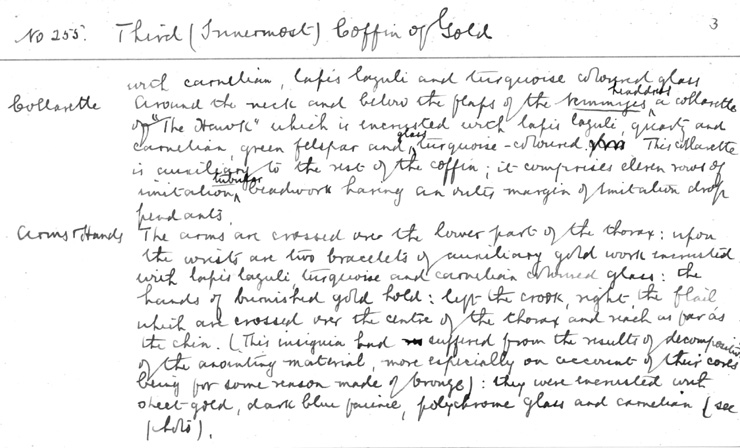 No 255. Third (Innermost) Coffin of Gold 3
with carnelian, lapis lazuli and turquoise coloured glass
Collarette Around the neck and below the flaps of the Nemmyes headdress a collarette
of "The Hawk" which is encrusted with lapis lazuli, quartz and
carnelian, green felspar and turquoise-coloured glass. This collarette
is auxiliary to the rest of the coffin; it comprises eleven rows of
imitation tubular beadwork having an outer margin of imitation drop
pendants.
Arms & Hands The arms are crossed over the lower part of the thorax: upon
the wrists are two bracelets of auxiliary gold work encrusted
with lapis lazuli, turquoise and carnelian coloured glass: the
hands of burnished gold hold: left the crook, right the flail
which are crossed over the centre of the thorax and reach as far as
the chin. (This insignia had suffered from the results of decomposition
of the anointing material, more especially on account of their cores
being for some reason made of bronze): they were encrusted with
sheet gold, dark blue faience, polychrome glass and carnelian (see
photo).